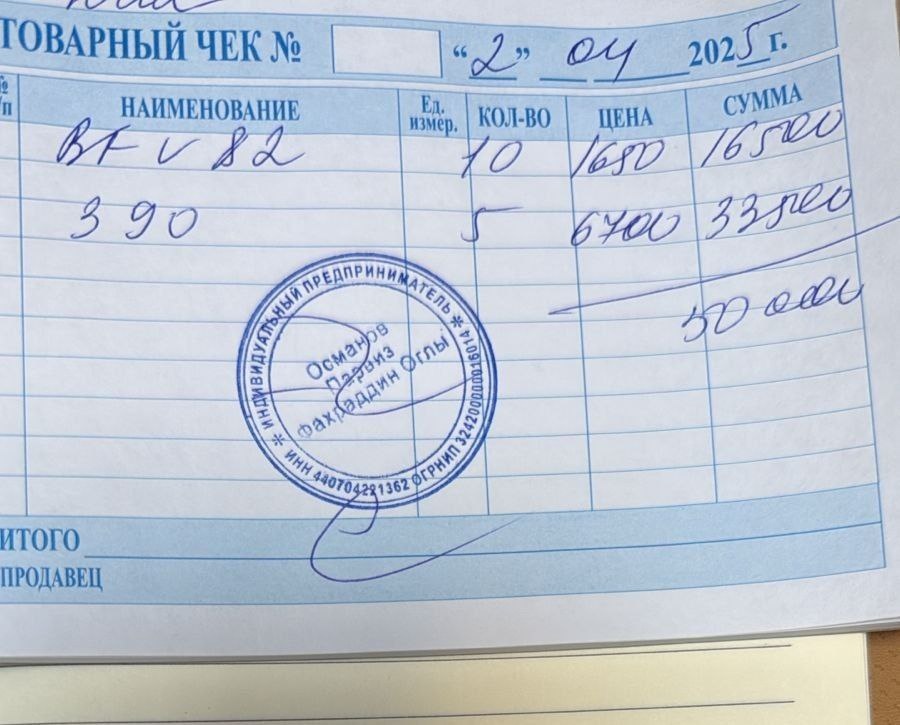 ТОВАРНЫЙ ЧЕК № "2" 04 2025 г.
№ п/п НАИМЕНОВАНИЕ Ед. измер. КОЛ-ВО ЦЕНА СУММА
BF V 82 10 1650 16500
390 5 6700 33500
50 000
ИНДИВИДУАЛЬНЫЙ ПРЕДПРИНИМАТЕЛЬ
Османов
Парвиз
Фахраддин Оглы
ИНН 440704221362 ОГРНИП 324200000016014
ИТОГО
ПРОДАВЕЦ